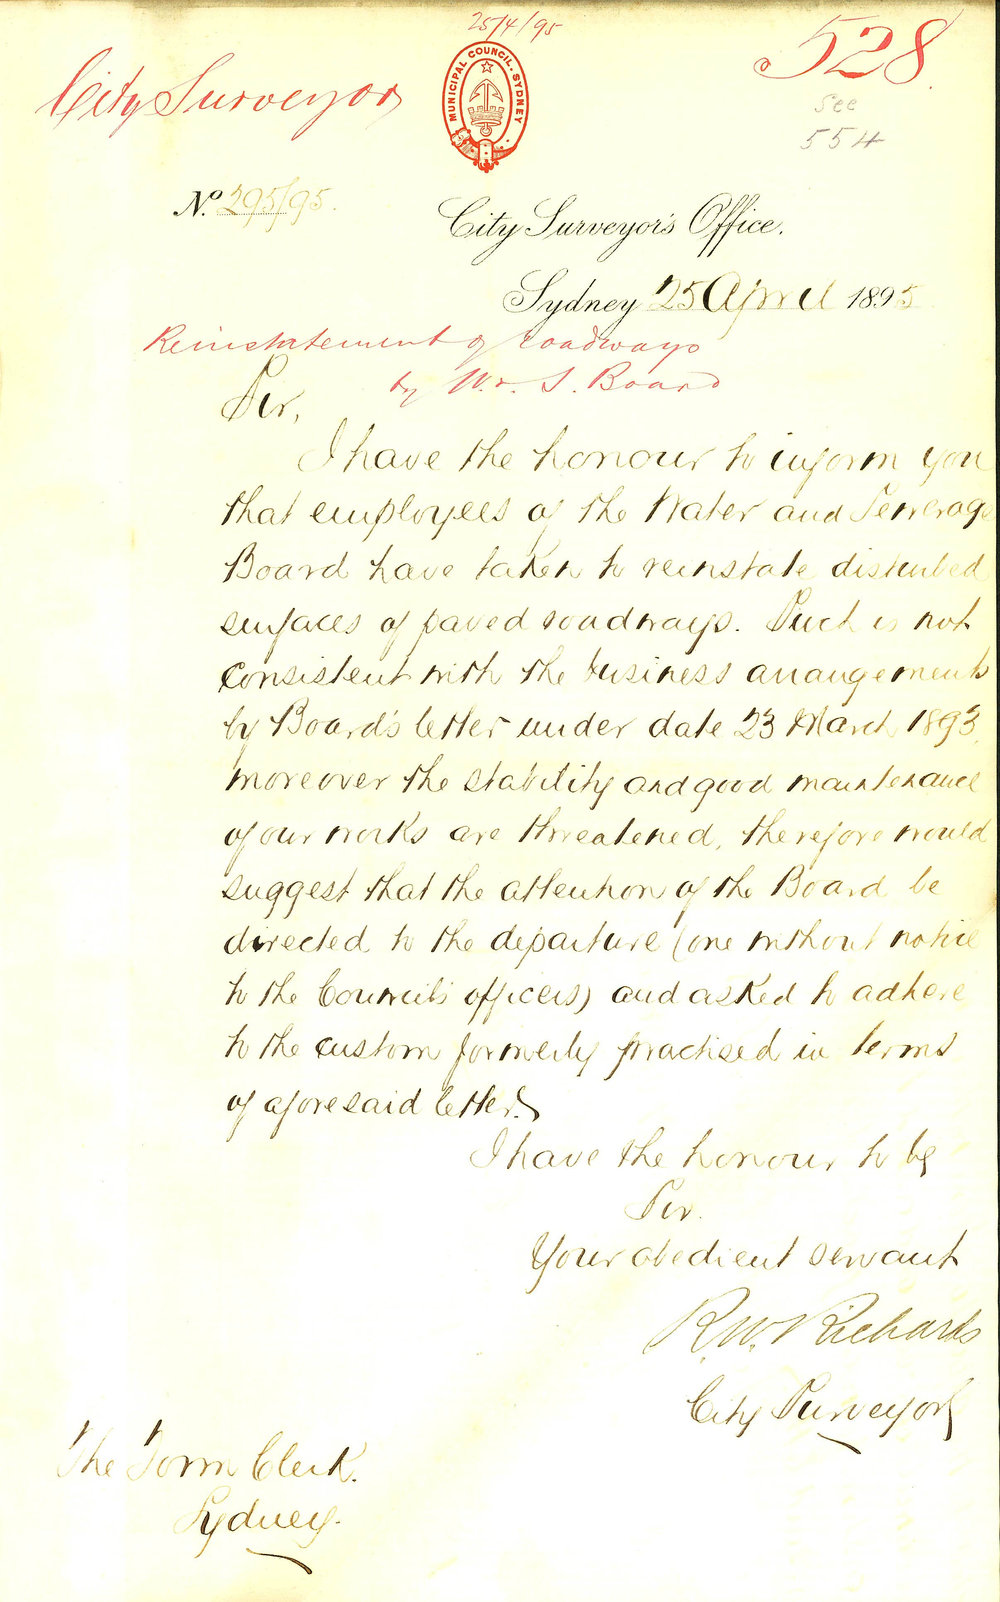 25/4/95
528
City Surveyor
MUNICIPAL COUNCIL. SYDNEY
see
554
No. 295/95.
City Surveyor's Office.
Sydney 25 April 1895
Reinstatement of roadways
by W. & S. Board
Sir,
I have the honour to inform you
that employees of the Water and Sewerage
Board have taken to reinstate disturbed
surfaces of paved roadways. Such is not
consistent with the business arrangements
by Board's letter under date 23 March 1893,
moreover the stability and good maintenance
of our works are threatened, therefore would
suggest that the attention of the Board be
directed to the departure (one without notice
to the Council's officers) and asked to adhere
to the custom formerly practised in terms
of aforesaid letter.
I have the honour to be
Sir.
Your obedient servant
R.W. Richards
City Surveyor
The Town Clerk.
Sydney.